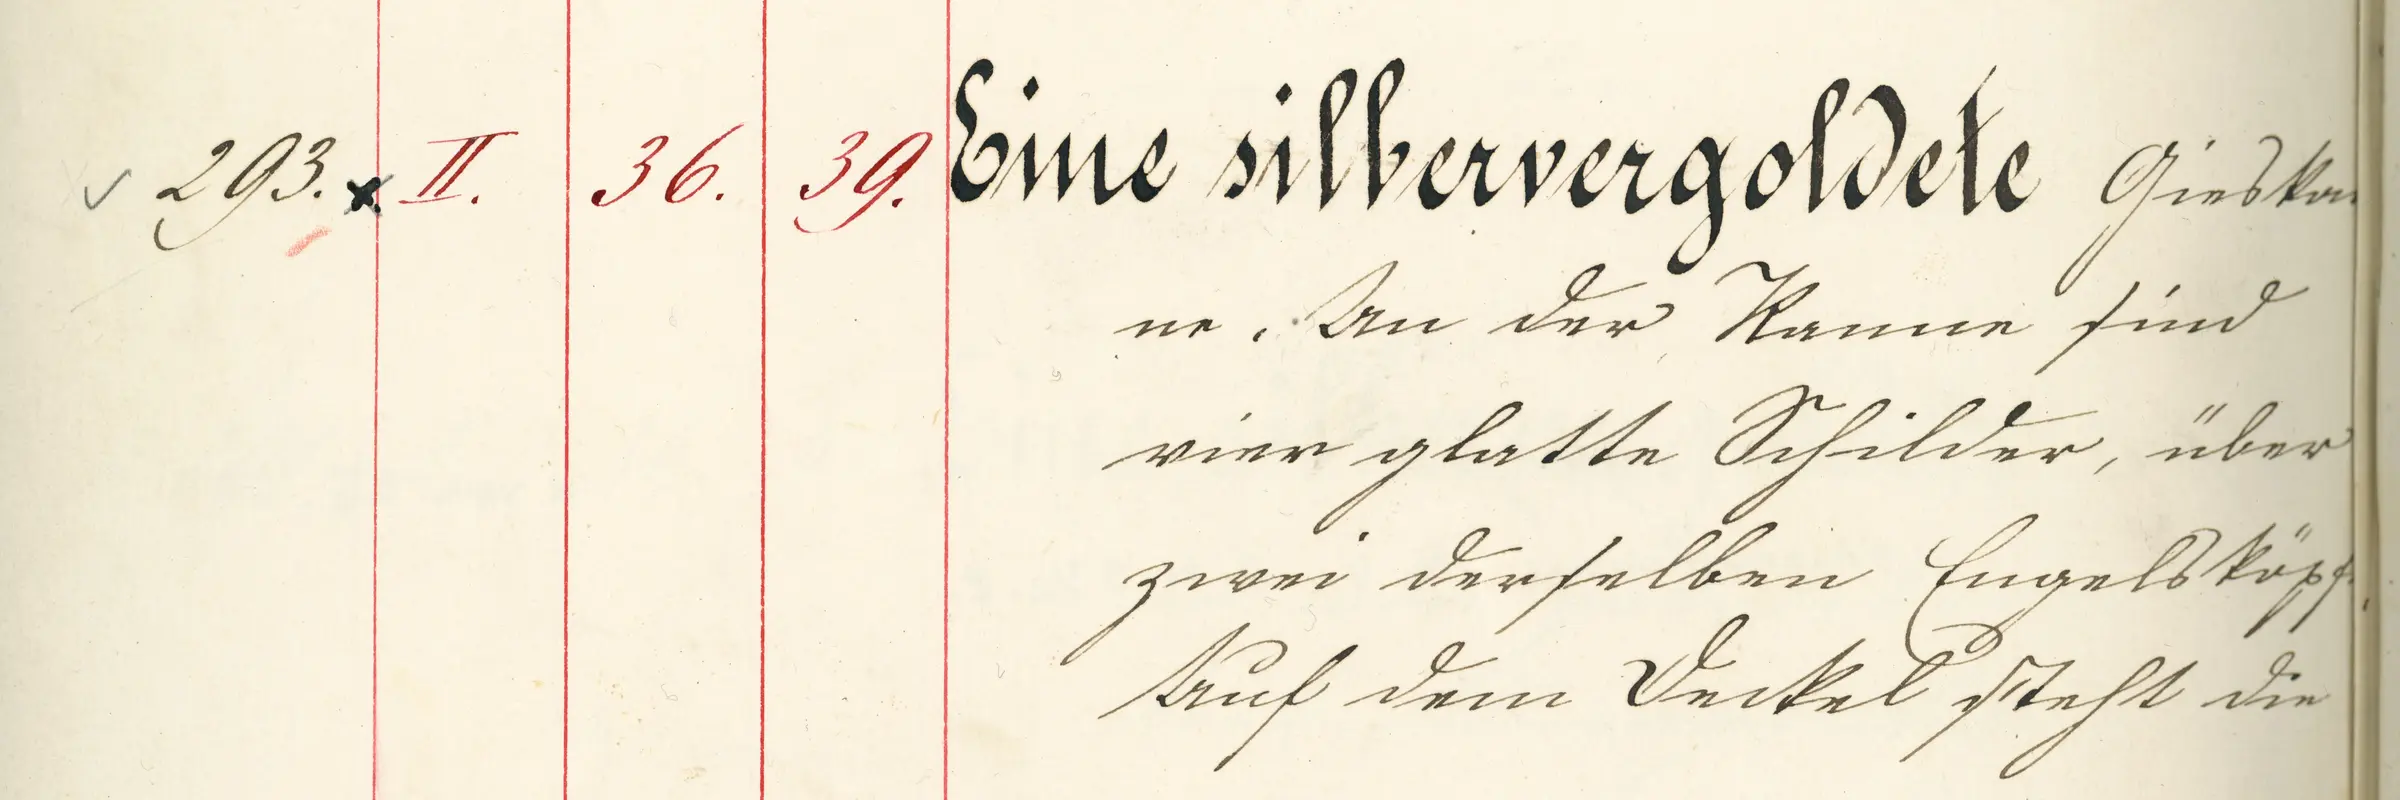 293. x II. 36. 39. Eine silbervergoldete Gieskan
ne. An der Kanne sind
vier glatte Schilder, über
zwei derselben Engelsköpfe.
Auf dem Deckel steht die